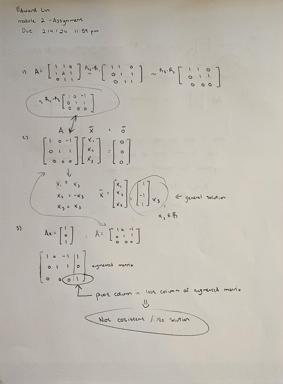 Edward Lin
module 2 - Assignment
Due 2/4/24 11:59 pm
1) A = [ 1 1 0 ~ [ 1 1 0 ~ [ 1 1 0
0 1 1 0 1 1
0 1 1 0 0 0
[ 1 0 -1
0 1 1
0 0 0 ]
2) A x̄ = ō
[ 1 0 -1 [ x₁ [ 0
0 1 1 x₂ = 0
0 0 0 ] x₃ ] 0 ]
x₁ = x₃
x₂ = -x₃
x₃ = x₃
x̄ = [ x₁ x₂ x₃ ] = [ 1 -1 1 ] x₃ ← general solution
3) Ax = [ 1 0 1 ] A = [ 1 0 -1
0 1 1
0 0 0 ]
[ 1 0 -1 | 1
0 1 1 | 0 augmented matrix
0 0 0 | 1 ]
pivot column in last column of augmented matrix
Not cosistent / No solution